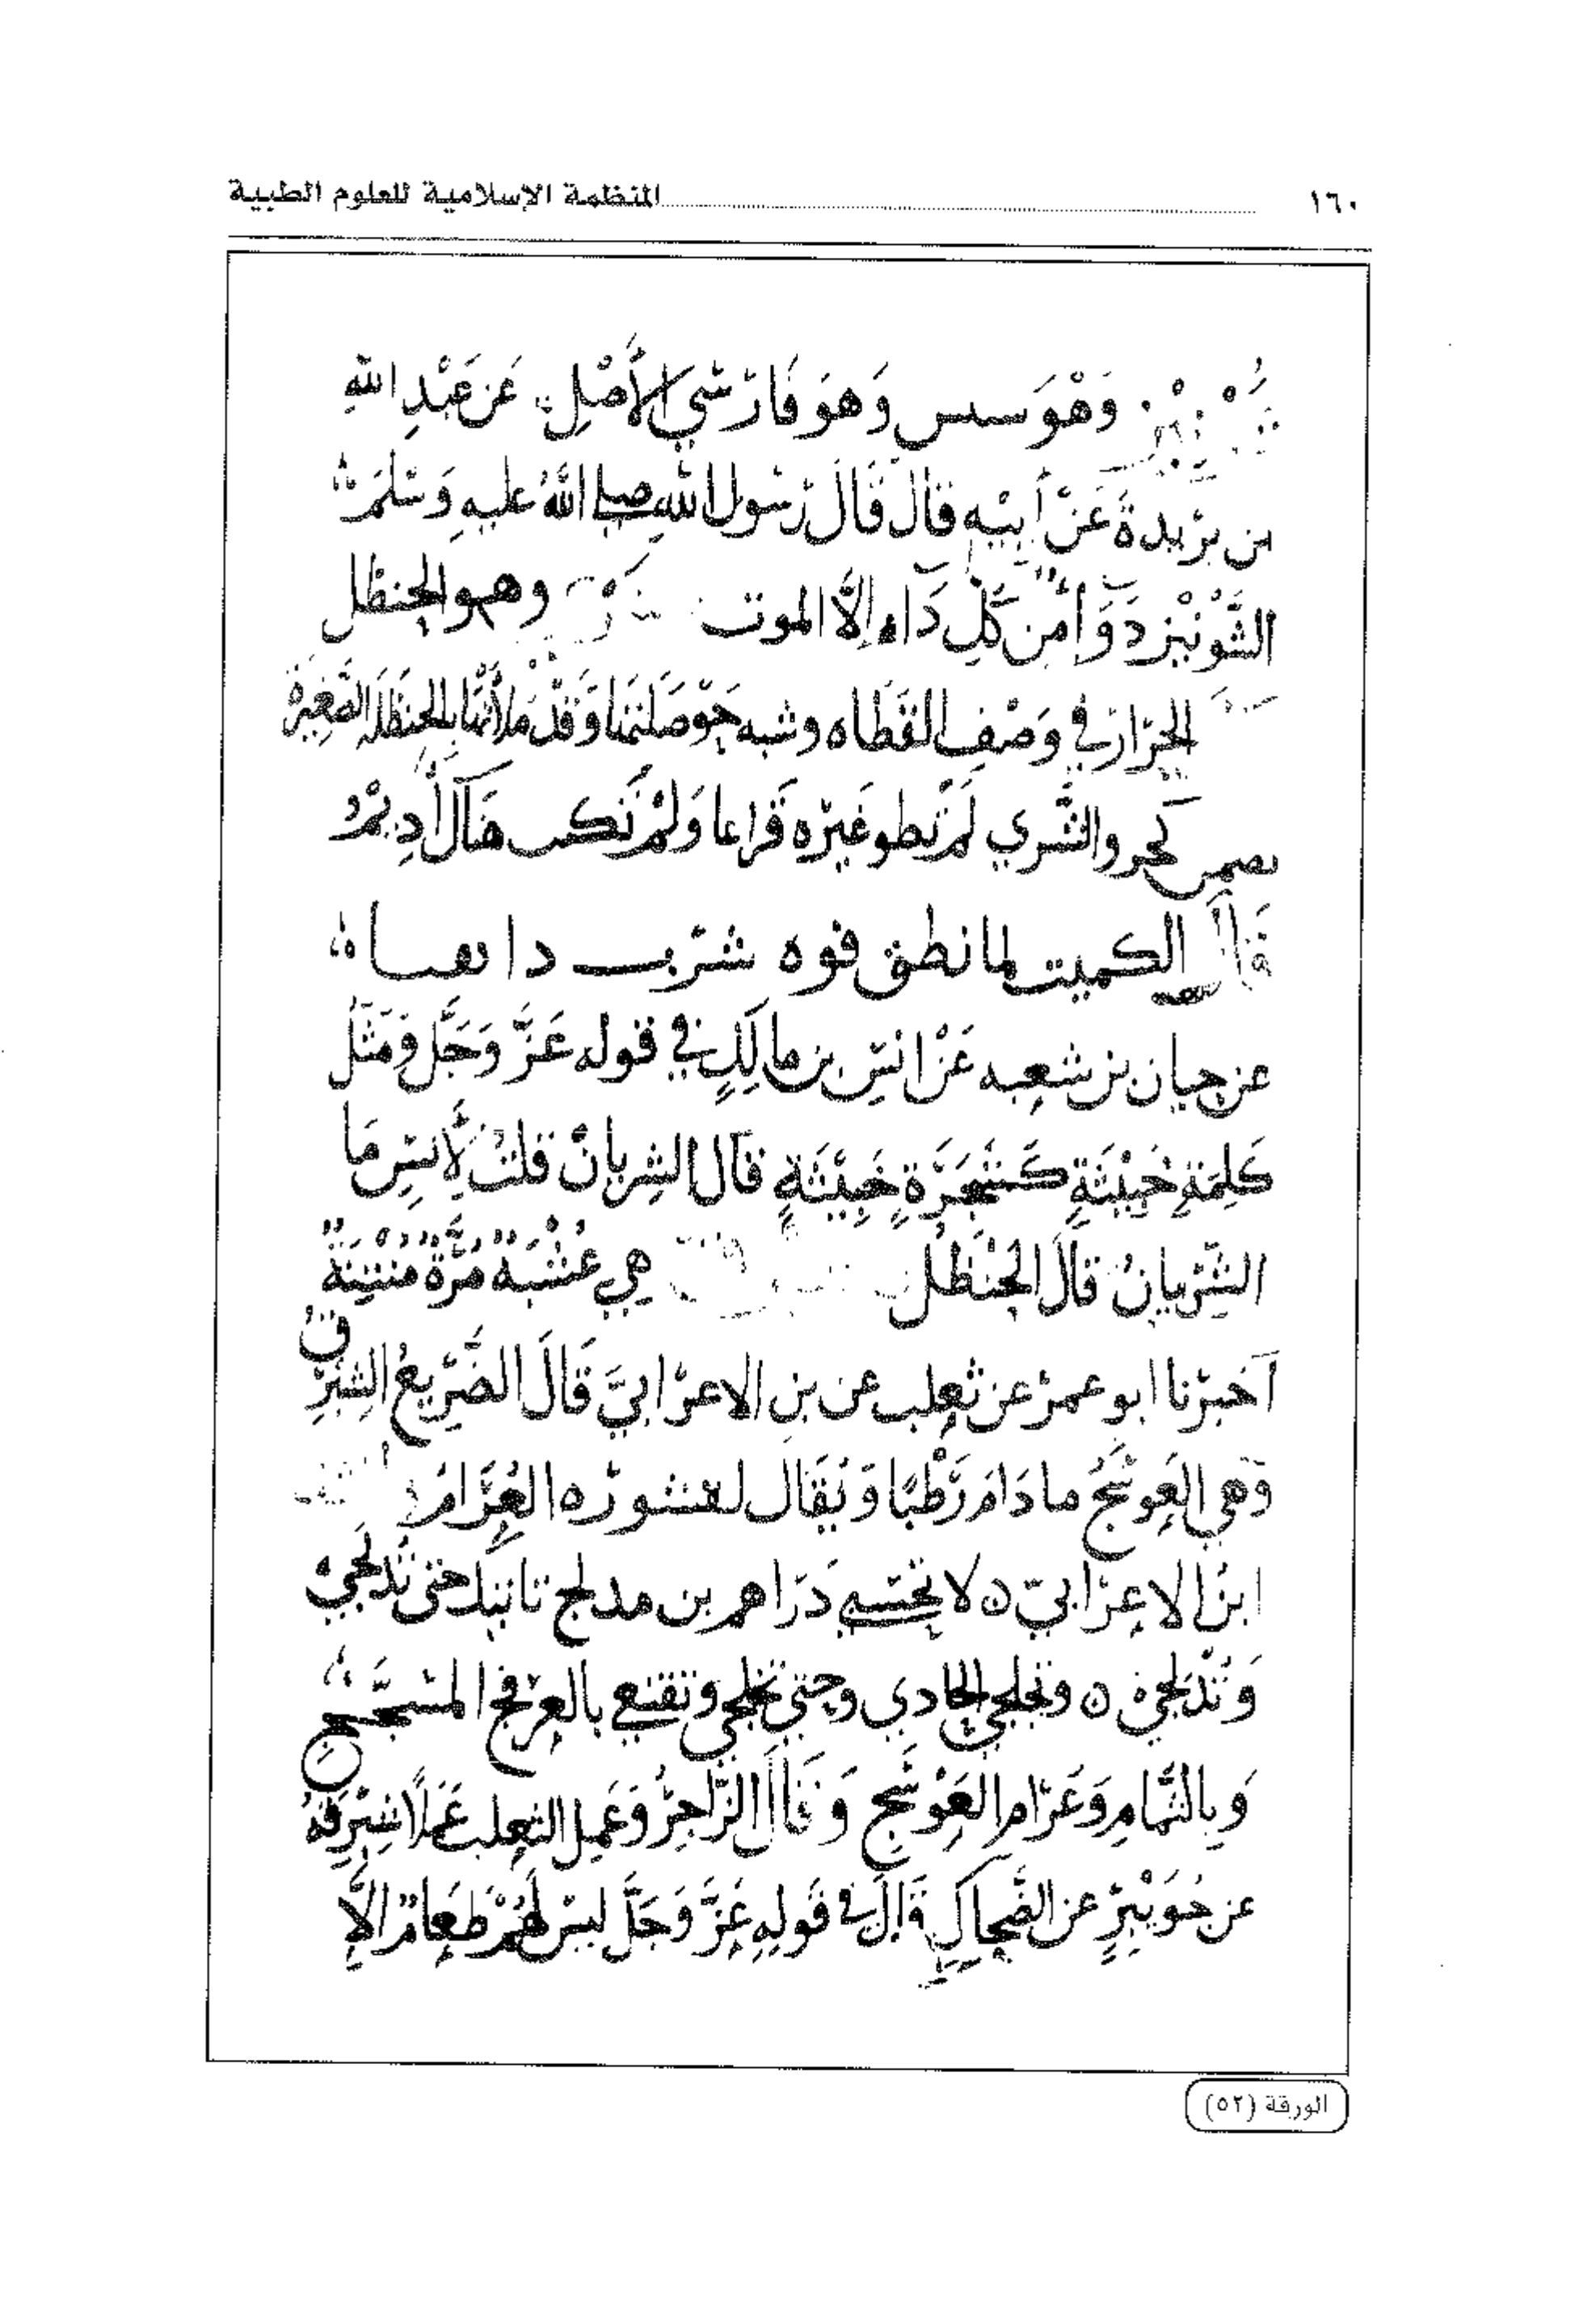 ١٦٠ المنظمة الإسلامية للعلوم الطبية
وَهْوَ سىس وَهوَ فَارسي الأَصْلِ عَن عَبْدِ اللهِ
بن بريدة عَنْ أبيْه قال قَالَ رَسُول اللهِ صلى اللهُ عليهِ وَسَلم
الشَّوْنيْز دَوَآء مِن كُلِّ دَاء إلَّا الموت وهو الحنظل
الخرّاز في وَصْف القَطَاه وشبه حَوْصَلتهَا وَقَدْ مَلأتْهَا بالحنظَله الصَّغِيرَة
كجرو الشَّري لَمْ
قَالَ الكميت لما نطق فوه
عن حبان بن شعبه عَنْ انسِ بن مالِكٍ في قوله عَزَّ وَجَلَّ وَمَثَلُ
كَلِمَةٍ خَبيْثَةٍ كَشَجَرَةٍ خَبِيْثَةٍ قال الشِريانُ قلتُ لأَنسٍ مَا
الشِّريانُ قالَ الحَنْظَلُ هي عُشْبَةٌ مُرَّةٌ مُنْتِنَةٌ
أخبرنا ابو عمر عن ثعلب عن بن الاعرابيَّ قَالَ الضَّرِيعُ الشِبْرِقُ
وَهي العَوسَجُ ما دَامَ رَطْبًا وَيُقَال لقشوره العُرَّامُ
ابنُ الاعرابيّ ن لا تحسَبي دَرَاهم بن مدلج تاتيك حتى تُدلجيْ
وَتُدْلجيْ ن وتقنعي بالعرفج المشجَّجِ
وَبالثُّمامِ وَعُرّام العَوْسَجِ وَقَالَ الرَّاجِزُ وَعَمِلَ الثعلب عَمَلًا شِبْرِقُهُ
عن جُوَيْبِرٍ عن الضَّحاكِ قال في قَولِهِ عَزَّ وَجَلَّ ليسَ لَهُمْ طَعَامٌ الَّا
الورقة (٥٢)